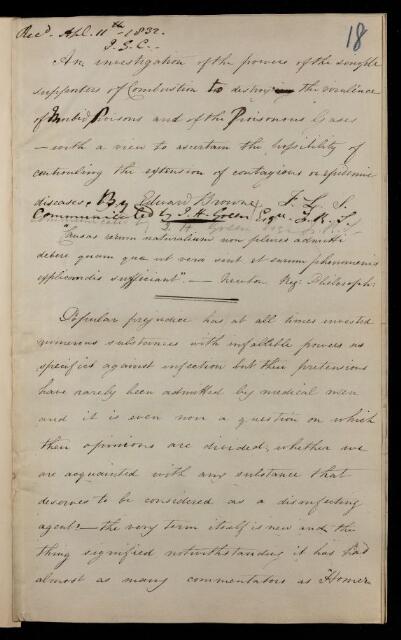 Recd. Apl. 11th 1832.
J. G. C.
18
An investigation of the powers of the simple
supporters of Combustion to destroy the virulence
of Morbid Poisons and of the Poisonous Gases
— with a view to ascertain the possibility of
controuling the extension of contagious or epidemic
diseases. By Edward Browne, F. L. S.
Communicated by J. H. Green Esqre. F. R. S.
"Causas rerum naturalium non plures admitti
debere quam quae et vera sint et earum phenomenis
explicandis sufficiant" — Newton Reg: Philosoph:
Popular prejudice has at all times invested
numerous substances with infallible powers as
specifics against infection but their pretensions
have rarely been admitted by medical men
and it is even now a question on which
their opinions are divided, whether we
are acquainted with any substance that
deserves to be considered as a disinfecting
agent? — the very term itself is new and the
thing signified notwithstanding it has had
almost as many commentators as Homer